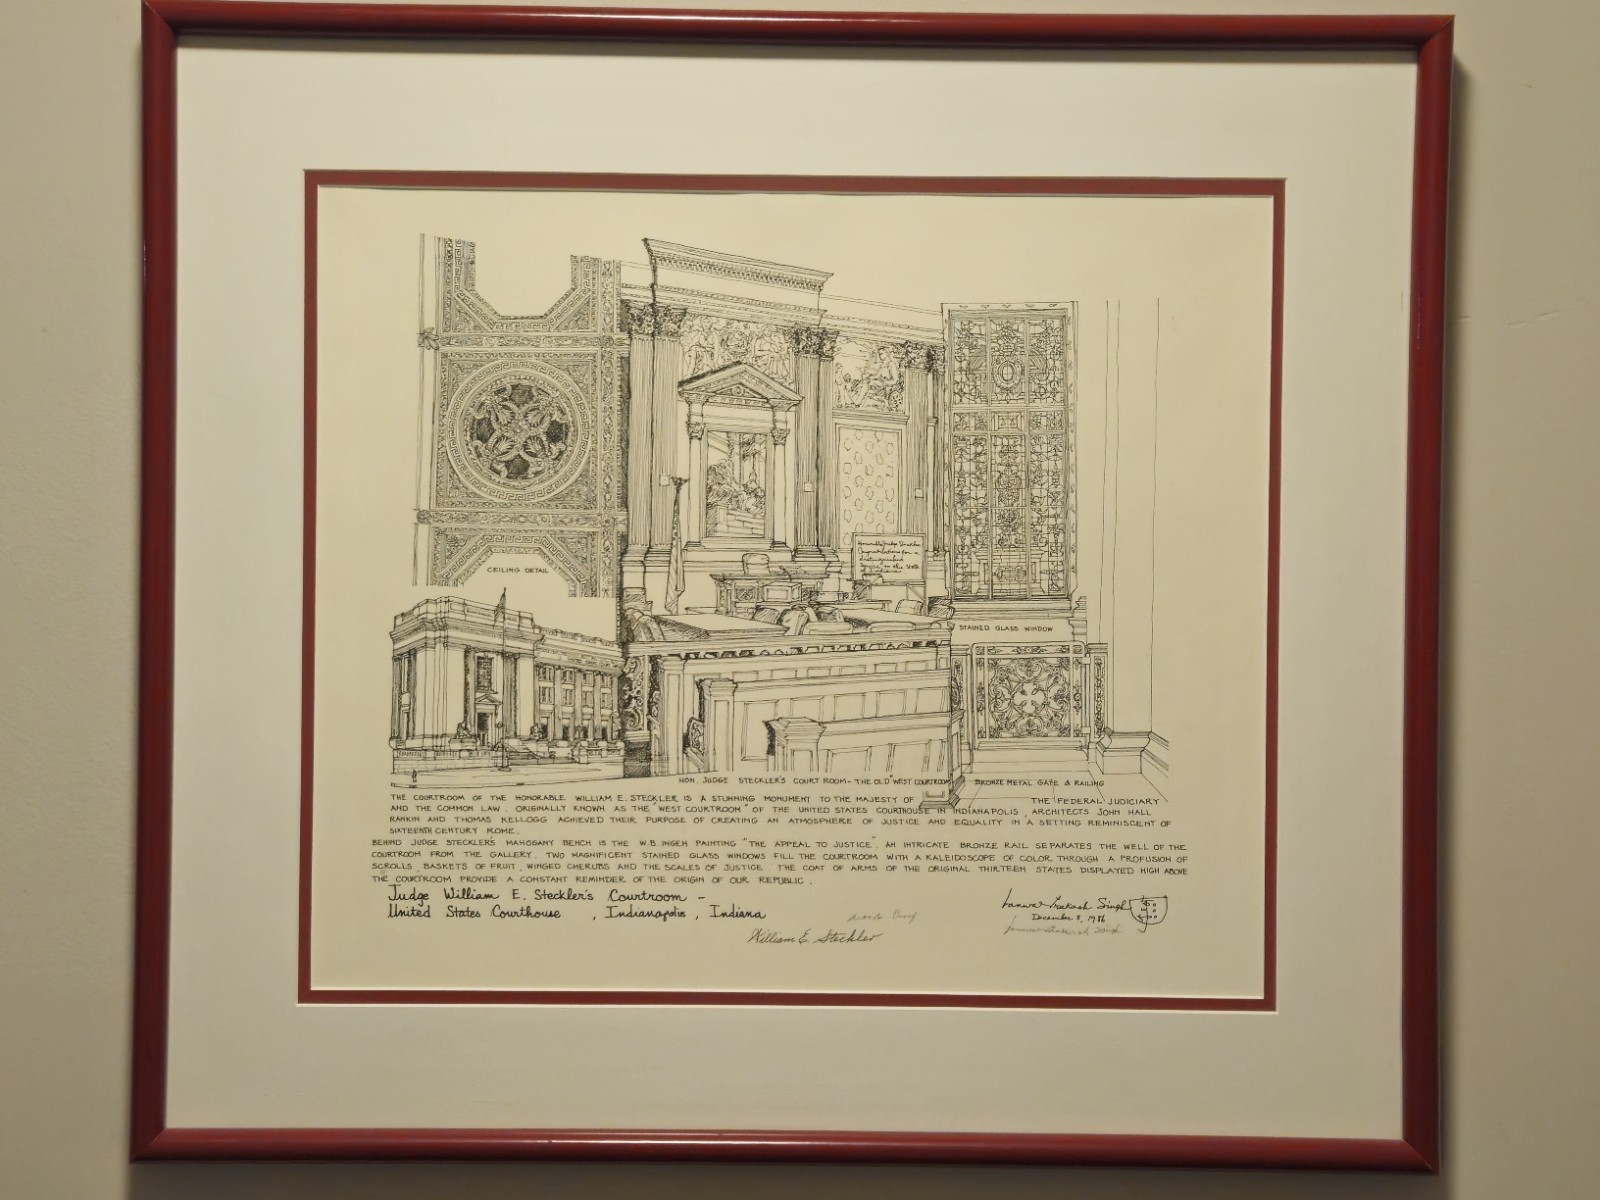 Honorable Judge Steckler
Congratulations for a
distinguished
service to the State
of Indiana
CEILING DETAIL
STAINED GLASS WINDOW
HON. JUDGE STECKLER'S COURT ROOM - THE OLD "WEST COURTROOM"
BRONZE METAL GATE & RAILING
THE COURTROOM OF THE HONORABLE WILLIAM E. STECKLER IS A STUNNING MONUMENT TO THE MAJESTY OF THE FEDERAL JUDICIARY
AND THE COMMON LAW. ORIGINALLY KNOWN AS THE "WEST COURTROOM" OF THE UNITED STATES COURTHOUSE IN INDIANAPOLIS, ARCHITECTS JOHN HALL
RANKIN AND THOMAS KELLOGG ACHIEVED THEIR PURPOSE OF CREATING AN ATMOSPHERE OF JUSTICE AND EQUALITY IN A SETTING REMINISCENT OF
SIXTEENTH CENTURY ROME.
BEHIND JUDGE STECKLER'S MAHOGANY BENCH IS THE W.B. INGEN PAINTING "THE APPEAL TO JUSTICE". AN INTRICATE BRONZE RAIL SEPARATES THE WELL OF THE
COURTROOM FROM THE GALLERY. TWO MAGNIFICENT STAINED GLASS WINDOWS FILL THE COURTROOM WITH A KALEIDOSCOPE OF COLOR THROUGH A PROFUSION OF
SCROLLS, BASKETS OF FRUIT, WINGED CHERUBS AND THE SCALES OF JUSTICE. THE COAT OF ARMS OF THE ORIGINAL THIRTEEN STATES DISPLAYED HIGH ABOVE
THE COURTROOM PROVIDE A CONSTANT REMINDER OF THE ORIGIN OF OUR REPUBLIC.
Judge William E. Steckler's Courtroom -
United States Courthouse, Indianapolis, Indiana
Proof
William E. Steckler
Kanwal Prakash Singh
December 8, 1986
Kanwal Prakash Singh